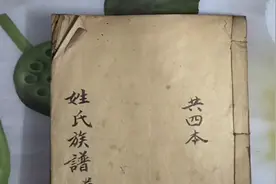 共四本
姓氏族譜